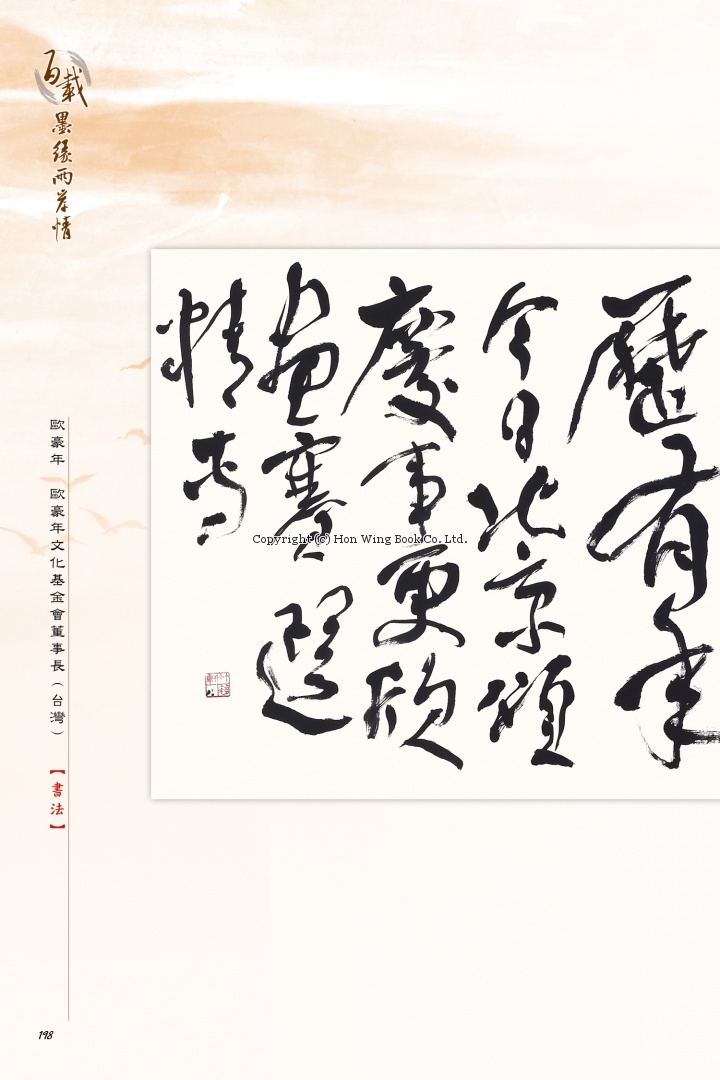 百載墨緣兩岸情
歷有年
今日北京頌
慶事更欣
畫騫選
精專
Copyright (c) Hon Wing Book Co. Ltd.
歐豪年 歐豪年文化基金會董事長(台灣)
【書法】
198